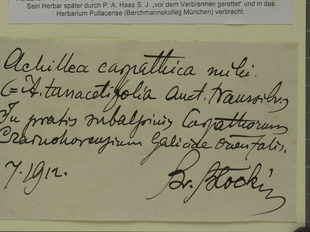 Sein Herbar später durch P. A. Haas S. J. „vor dem Verbrennen gerettet" und in das
Herbarium Pullacense (Berchmannskolleg München) verbracht.
Achillea carpathica mihi.
(= A. tanacetifolia auct. transsilv.
In pratis subalpinis Carpathorum
Czarnohorensium Galicide orientalis.
7. 1912. Br. Błocki